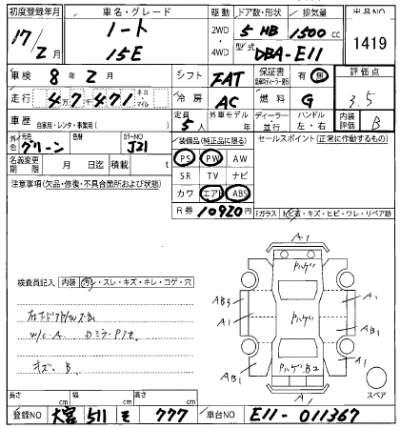 初度登録年月 車名・グレード 駆動 ドア数・形状 排気量 出品NO
17/2月 ノート 2WD 4WD 5 HB 1500cc 1419
15E 型式 DBA-E11
車検 8年2月 シフト FAT 保証書 有・無 評価点
走行 4万7千471 キロ マイル 冷房 AC 燃料 G 3.5
車歴 自家用・レンタ・事業用( ) 定員 5人 ディーラー 並行 ハンドル 左・右 内装評価 B
外色 元色 グリーン 色替 カラーNO J21 装備品(純正品に限る) セールスポイント(正常に作動するもの)
名義変更期限 月 日迄 積載 t PS PW AW
注意事項(欠品・修復・不具合箇所および状態) SR TV ナビ
カワ エアB ABS
R券 10920円 Fガラス トビ石・キズ・ヒビ・ワレ・リペア跡
A1
検査員記入 内装 汚・スレ・キズ・キレ・コゲ・穴
AB3 A1
A1 AB1
W/C A. Dミラー
キズ B
AB1 A1
A1
スペア
長さ cm 幅 cm 高さ cm
登録NO 大宮 511 モ 777 車台NO E11-011367